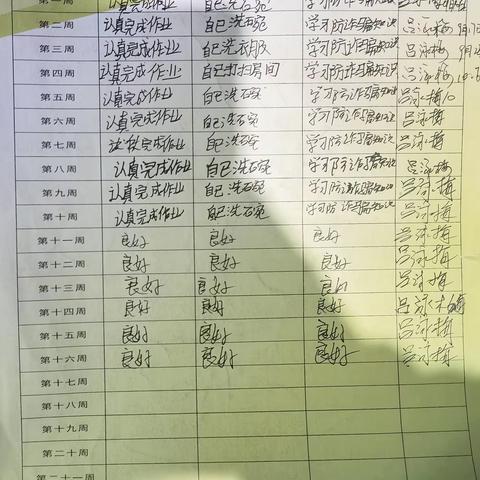 第一周 认真完成作业 自己洗碗 学习防诈骗知识
第二周 认真完成作业 自己洗碗 学习防诈骗知识 吕泳梅
第三周 认真完成作业 自己洗衣服 学习防诈骗知识 吕泳梅
第四周 认真完成作业 自己打扫房间 学习防诈骗知识 吕泳梅
第五周 认真完成作业 自己洗碗 学习防诈骗知识 吕泳梅
第六周 认真完成作业 自己洗碗 学习防诈骗知识 吕泳梅
第七周 认真完成作业 自己洗碗 学习防诈骗知识 吕泳梅
第八周 认真完成作业 自己洗碗 学习防诈骗知识 吕泳梅
第九周 认真完成作业 自己洗碗 学习防诈骗知识 吕泳梅
第十周 认真完成作业 自己洗碗 学习防诈骗知识 吕泳梅
第十一周 良好 良好 良好 吕泳梅
第十二周 良好 良好 良好 吕泳梅
第十三周 良好 良好 良好 吕泳梅
第十四周 良好 良好 良好 吕泳梅
第十五周 良好 良好 良好 吕泳梅
第十六周 良好 良好 良好 吕泳梅
第十七周
第十八周
第十九周
第二十周
第二十一周